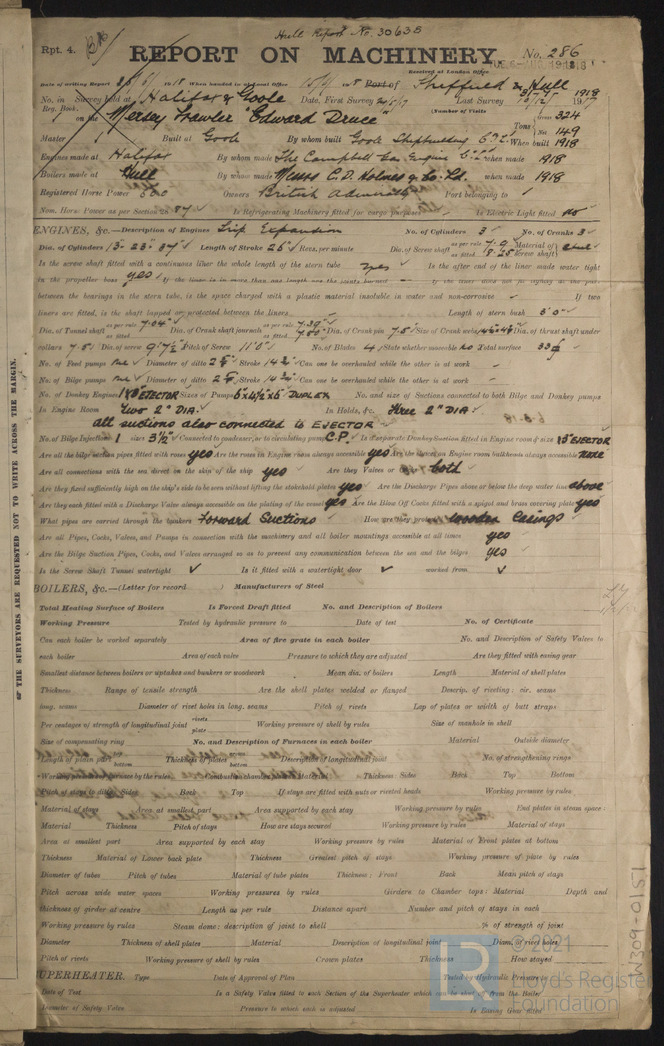 Hull Report No. 30635
Rpt. 4.
REPORT ON MACHINERY
No. 286
Received at London Office
Date of writing Report 19 When handed in at Local Office 19 Port of Sheffield & Hull
No. in Survey held at Halifax & Goole Date, First Survey Last Survey 1918
Reg. Book. (Number of Visits
on the Mersey Trawler "Edward Druce"
Tons Gross 324
Net 149
Master Built at Goole By whom built Goole Shipbuilding When built 1918
Engines made at Halifax By whom made The Campbell Gas Engine when made 1918
Boilers made at Hull By whom made Messrs C. D. Holmes & Co. Ld. when made 1918
Registered Horse Power Owners British Admiralty Port belonging to
Nom. Horse Power as per Section 28 87 Is Refrigerating Machinery fitted for cargo purposes Is Electric Light fitted no
ENGINES, &c.—Description of Engines Trip Expansion No. of Cylinders 3 No. of Cranks 3
Dia. of Cylinders 13" 23" 37" Length of Stroke 26" Revs. per minute Dia. of Screw shaft as per rule as fitted Material of screw shaft steel
Is the screw shaft fitted with a continuous liner the whole length of the stern tube yes Is the after end of the liner made water tight
in the propeller boss yes If the liner is in more than one length are the joints burned If the liner does not fit tightly at the part
between the bearings in the stern tube, is the space charged with a plastic material insoluble in water and non-corrosive If two
liners are fitted, is the shaft lapped or protected between the liners Length of stern bush 3' 0"
Dia. of Tunnel shaft as per rule 7.04" as fitted Dia. of Crank shaft journals as per rule 7.39" as fitted Dia. of Crank pin Size of Crank webs Dia. of thrust shaft under
collars Dia. of screw 9' 7½" Pitch of Screw 11' 0" No. of Blades 4 State whether moveable no Total surface
No. of Feed pumps Diameter of ditto Stroke 14¾" Can one be overhauled while the other is at work
No. of Bilge pumps Diameter of ditto Stroke 14¾" Can one be overhauled while the other is at work
No. of Donkey Engines Sizes of Pumps DUPLEX No. and size of Suctions connected to both Bilge and Donkey pumps
In Engine Room Two 2" DIA. In Holds, &c. Three 2" DIA.
All suctions also connected to EJECTOR
No. of Bilge Injections 1 sizes 3½" Connected to condenser, or to circulating pump C.P. Is a separate Donkey Suction fitted in Engine room & size EJECTOR
Are all the bilge suction pipes fitted with roses yes Are the roses in Engine room always accessible yes Are the sluices on Engine room bulkheads always accessible none
Are all connections with the sea direct on the skin of the ship yes Are they Valves or Cocks both
Are they fixed sufficiently high on the ship's side to be seen without lifting the stokehold plates yes Are the Discharge Pipes above or below the deep water line above
Are they each fitted with a Discharge Valve always accessible on the plating of the vessel yes Are the Blow Off Cocks fitted with a spigot and brass covering plate yes
What pipes are carried through the bunkers Forward Suctions How are they protected Wooden Casings
Are all Pipes, Cocks, Valves, and Pumps in connection with the machinery and all boiler mountings accessible at all times yes
Are the Bilge Suction Pipes, Cocks, and Valves arranged so as to prevent any communication between the sea and the bilges yes
Is the Screw Shaft Tunnel watertight Is it fitted with a watertight door worked from
BOILERS, &c.—(Letter for record ) Manufacturers of Steel
Total Heating Surface of Boilers Is Forced Draft fitted No. and Description of Boilers
Working Pressure Tested by hydraulic pressure to Date of test No. of Certificate
Can each boiler be worked separately Area of fire grate in each boiler No. and Description of Safety Valves to
each boiler Area of each valve Pressure to which they are adjusted Are they fitted with easing gear
Smallest distance between boilers or uptakes and bunkers or woodwork Mean dia. of boilers Length Material of shell plates
Thickness Range of tensile strength Are the shell plates welded or flanged Descrip. of riveting: cir. seams
long. seams Diameter of rivet holes in long. seams Pitch of rivets Lap of plates or width of butt straps
Per centages of strength of longitudinal joint rivets plate Working pressure of shell by rules Size of manhole in shell
Size of compensating ring No. and Description of Furnaces in each boiler Material Outside diameter
Length of plain part top bottom Thickness of plates crown bottom Description of longitudinal joint No. of strengthening rings
Working pressure of furnace by the rules Combustion chamber plates: Material Thickness: Sides Back Top Bottom
Pitch of stays to ditto: Sides Back Top If stays are fitted with nuts or riveted heads Working pressure by rules
Material of stays Area at smallest part Area supported by each stay Working pressure by rules End plates in steam space:
Material Thickness Pitch of stays How are stays secured Working pressure by rules Material of stays
Area at smallest part Area supported by each stay Working pressure by rules Material of Front plates at bottom
Thickness Material of Lower back plate Thickness Greatest pitch of stays Working pressure of plate by rules
Diameter of tubes Pitch of tubes Material of tube plates Thickness: Front Back Mean pitch of stays
Pitch across wide water spaces Working pressures by rules Girders to Chamber tops: Material Depth and
thickness of girder at centre Length as per rule Distance apart Number and pitch of stays in each
Working pressure by rules Steam dome: description of joint to shell % of strength of joint
Diameter Thickness of shell plates Material Description of longitudinal joint Diam. of rivet holes
Pitch of rivets Working pressure of shell by rules Crown plates Thickness How stayed
SUPERHEATER. Type Date of Approval of Plan Tested by Hydraulic Pressure to
Date of Test Is a Safety Valve fitted to each Section of the Superheater which can be shut off from the Boiler
Diameter of Safety Valve Pressure to which each is adjusted Is Easing Gear fitted
OF THE SURVEYORS ARE REQUESTED NOT TO WRITE ACROSS THE MARGIN.
W309-0151
© 2021
Lloyd's Register
Foundation